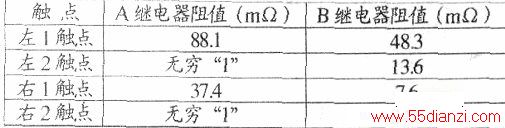 触点 A继电器阻值(mΩ) B继电器阻值(mΩ)
左1触点 88.1 48.3
左2触点 无穷“1” 13.6
右1触点 37.4
右2触点 无穷“1”
www.55dianzi.com